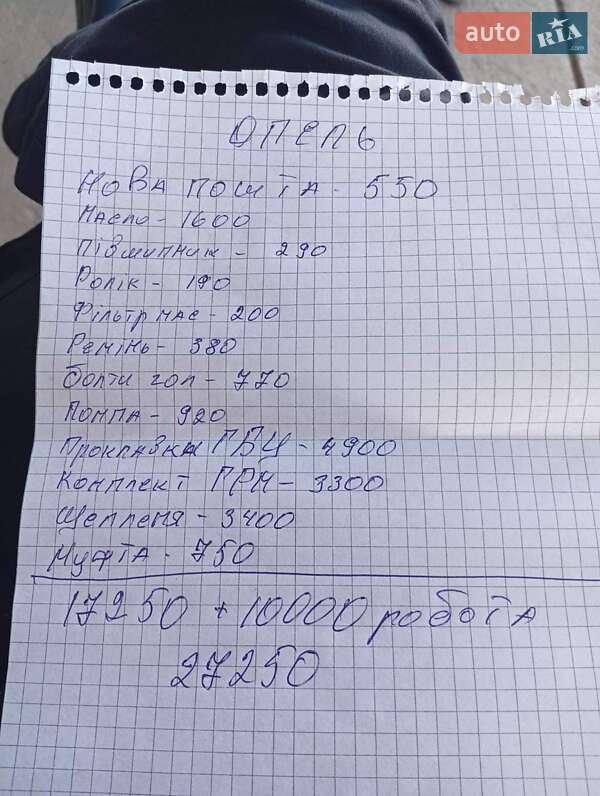 auto RIA .com
ОПЕЛЬ
НОВА ПОШТА - 550
Масло - 1600
Підшипник - 290
Ролік - 190
Фільтр мас - 200
Ремінь - 380
болти гол - 770
Помпа - 920
Прокладки ГБЦ - 4900
Комплект ГРМ - 3300
Щепленя - 3400
Муфта - 750
17250 + 10000 робота
27250